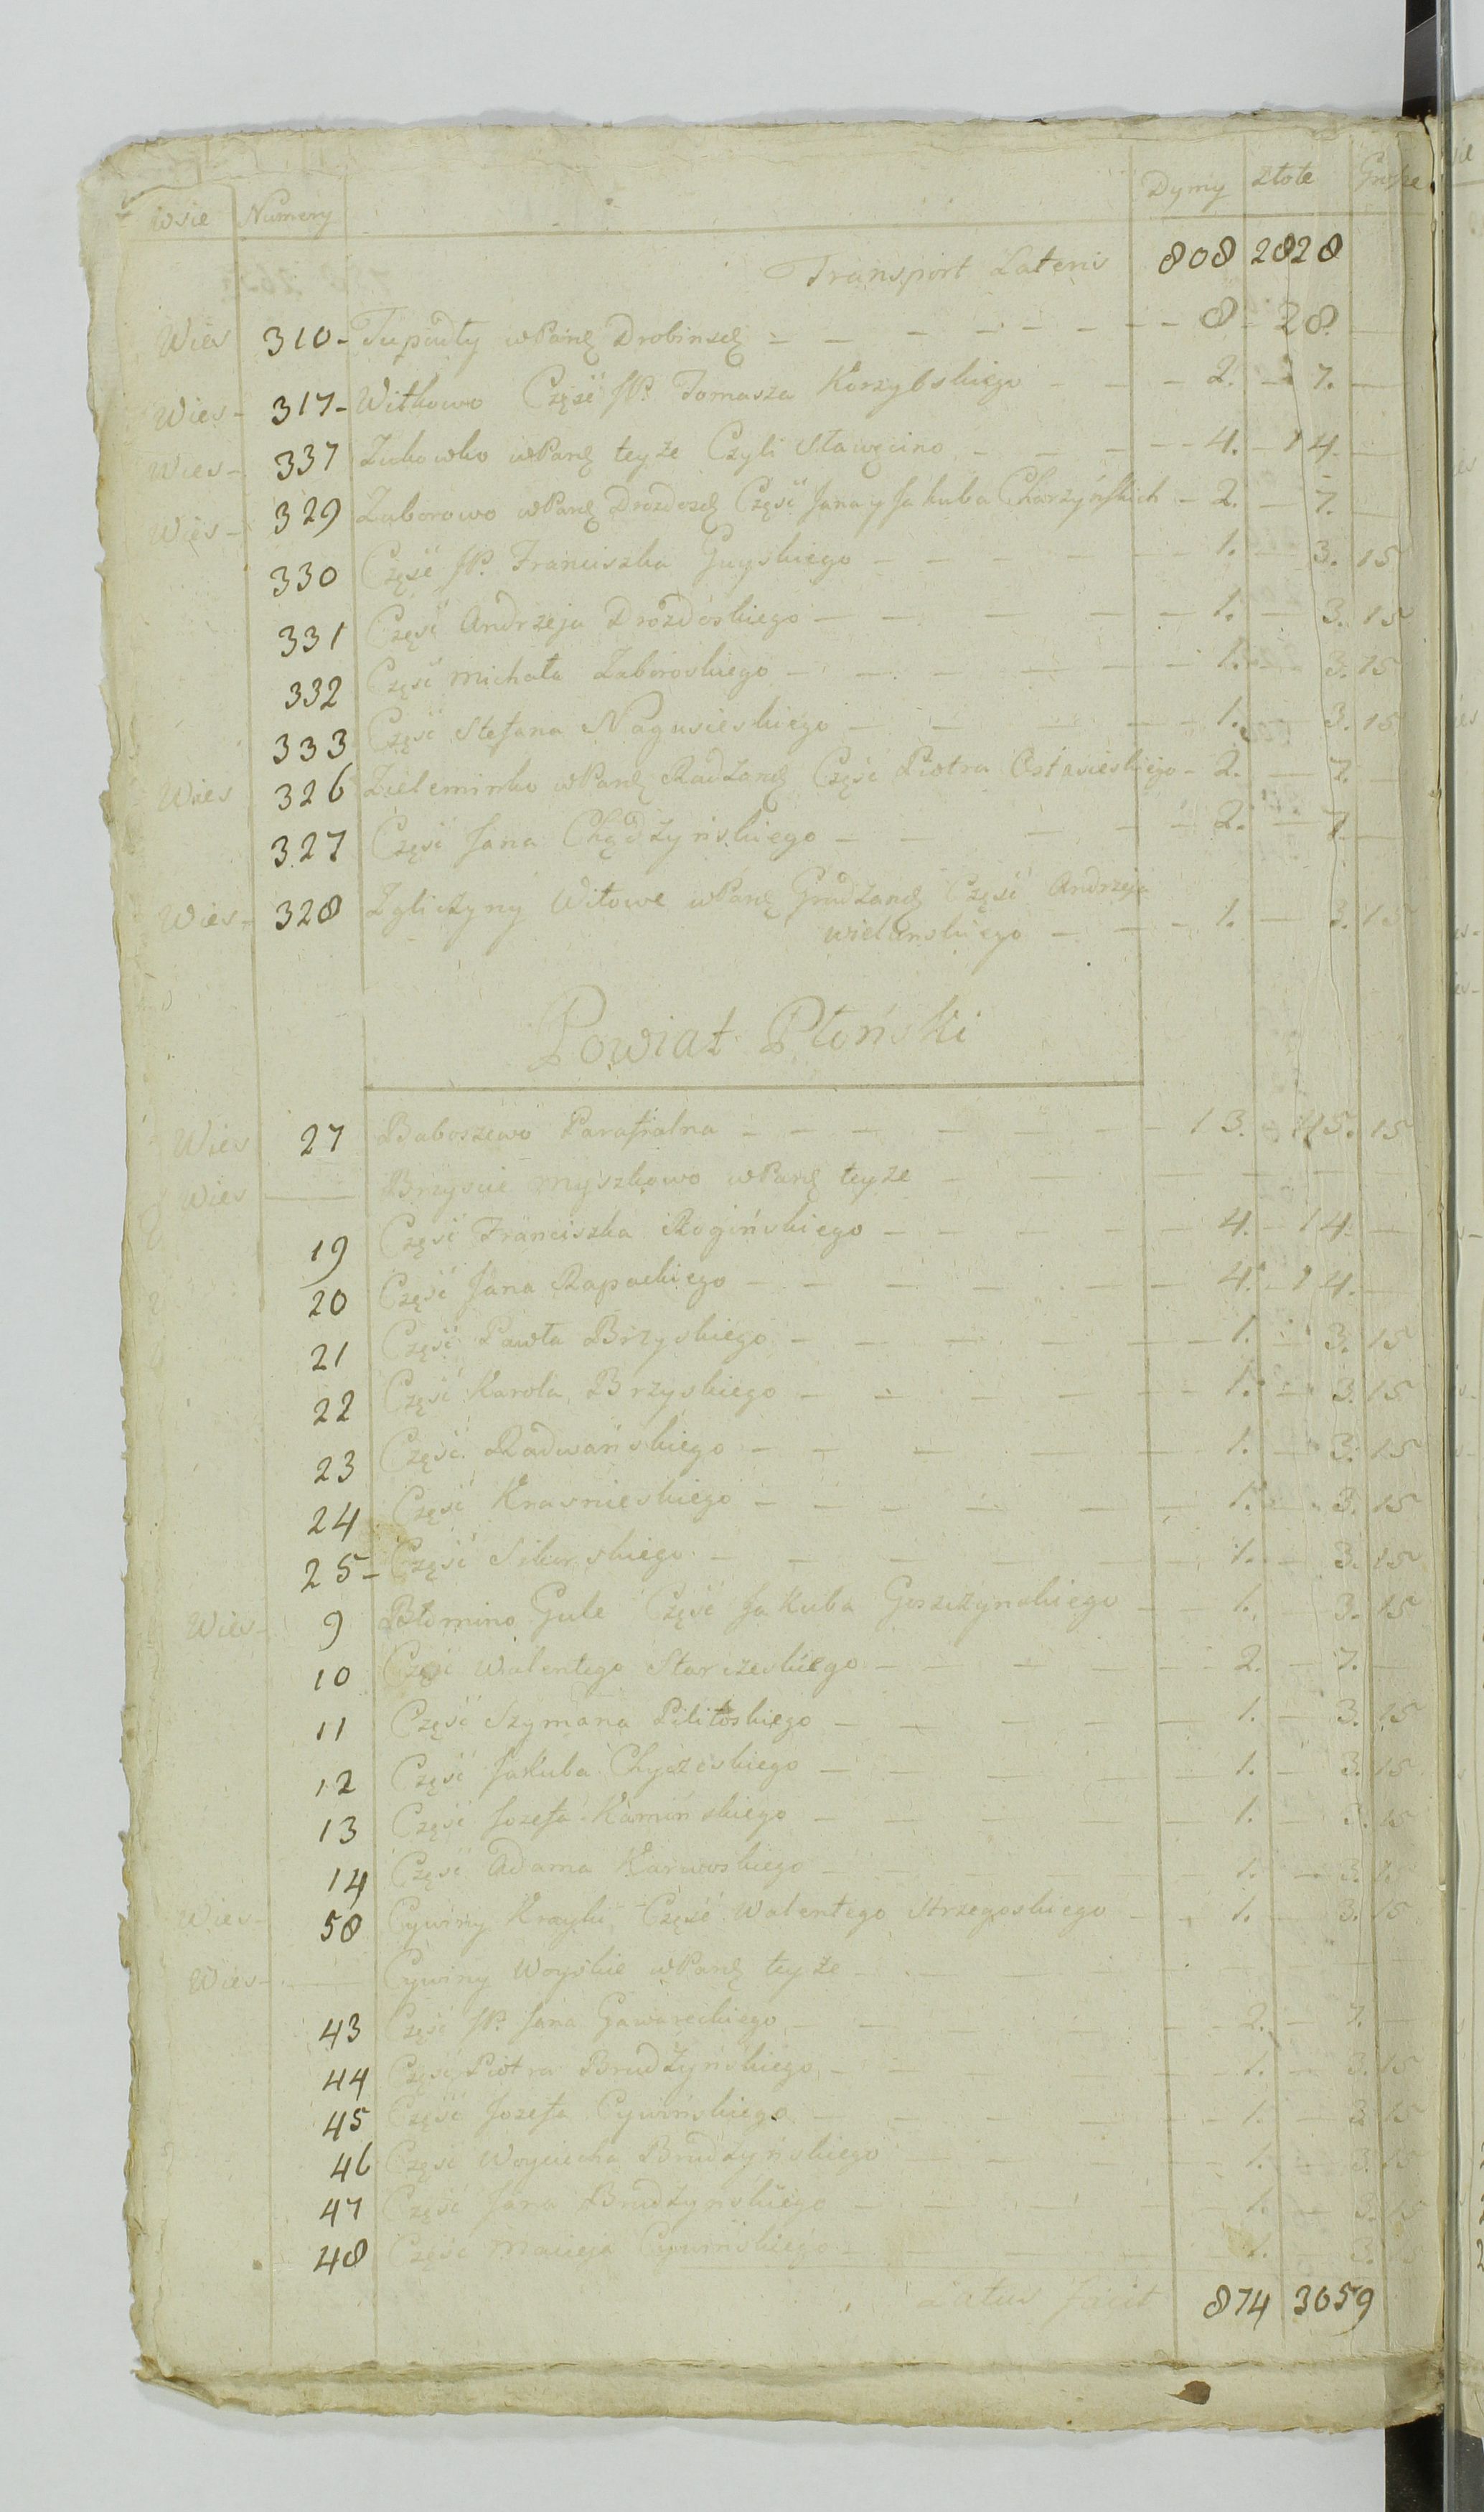 Wsie Numery Dymy Złote Grosze
Transport Lateris 808 2828
Wies 310 - Tupadły w Parỹ Drobinsỹ 8 - 28.
Wies - 317 - Witkowo Część JP. Tomasza Korzybskiego 2. 7.
Wies - 337 Zukowko w Parỹ teyże Czyli Sławęcino 4. 14.
Wies - 329 Zaborowo w Parỹ Drozdosỹ Część Jana y Jakuba Charzyńskich 2. 7.
330 Część JP. Franciszka Guyskiego 1. 3. 15
331 Część Andrzeja Drozdoskiego 1. 3. 15
332 Część Michała Zaboroskiego 1. 3. 15
333 Część Stefana Nagusieskiego 1. 3. 15
Wies 326 Zieleminko w Parỹ Radzanỹ Część Piotra Ostasieskiego 2. 7.
327 Część Jana Chądzyńskiego 2. 7.
Wies - 328 Zgliczyny Witowe w Parỹ Grudzanỹ Część Andrzeja
wielunskiego 1. 3. 15
Powiat Płoński
Wies 27 Baboszewo Parafialna 13. 45. 15
Wies Brzyscie Myszkowo w Parỹ teyze
19 Część Franciszka Rogińskiego 4. 14.
20 Część Jana Rapackiego 4. 14.
21 Część Pawła Brzyskiego 1. 3. 15
22 Część Karola Brzyskiego 1. 3. 15
23 Część Radwańskiego 1. 3. 15
24 Część Krasnieskiego 1. 3. 15
25 - Część Sikorskiego 1. 3. 15
Wies - 9 Błomino Gule Część Jakuba Goszczynskiego 1. 3. 15
10 Część Walentego Starczeskiego 2. 7.
11 Część Szymana Pilitoskiego 1. 3. 15
12 Część Jakuba Chyczeskiego 1. 3. 15
13 Część Jozefa Kamińskiego 1. 3. 15
14 Część Adama Karwoskiego 1. 3. 15
Wies - 58 Cywiny Krayki Część Walentego Strzegoskiego 1. 3. 15
Wies - Cywiny Woyskie w Parỹ teyże
43 Część JP. Jana Gawareckiego 2. 7.
44 Część Piotra Brudzyńskiego 1. 3. 15
45 Część Jozefa Cywińskiego 1. 3. 15
46 Część Woyciecha Brudzyńskiego 1. 3. 15
47 Część Jana Brudzyńskiego 1. 3. 15
48 Część Macieja Cywińskiego 1. 3. 15
Latus facit 874 3059